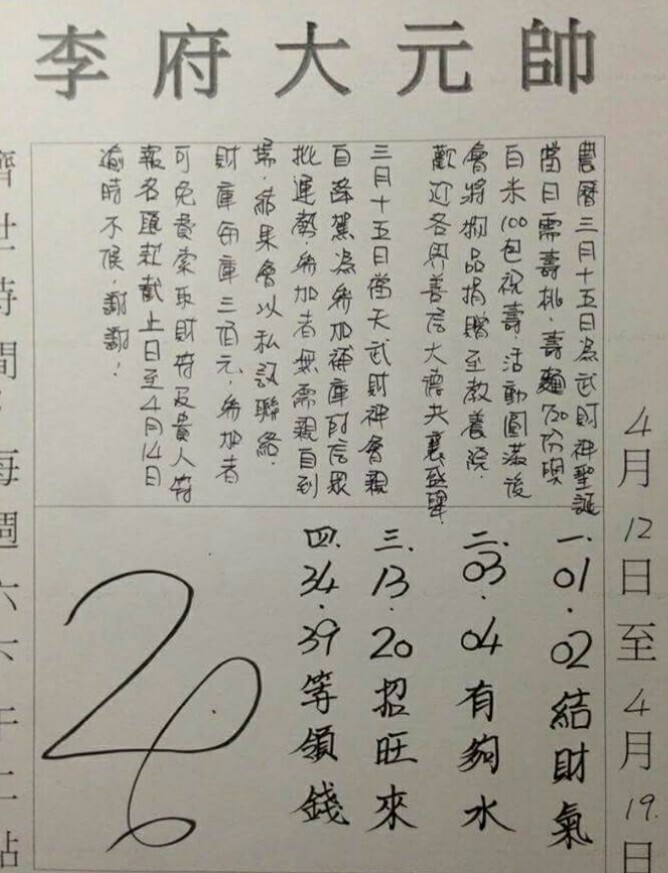 李府大元帥
4月12日至4月19日
農曆三月十五日為武財神聖誕
當日需壽桃、壽麵720份與
白米100包祝壽、活動圓滿後
會將物品捐贈至教養院、
歡迎各界善信大德共襄盛舉
三月十五日當天武財神會親
自降駕為參加補庫的信眾
批運勢、參加者無需親自到
場、結果會以私訊聯絡、
財庫每庫三佰元、參加者
可免費索取財符及貴人符
報名匯款截止日至4月14日
逾時不候、謝謝!
一.01.02結財氣
二.03.04有夠水
三.13.20招旺來
四.34.39等領錢
26
濟世時間:每週六下午二點